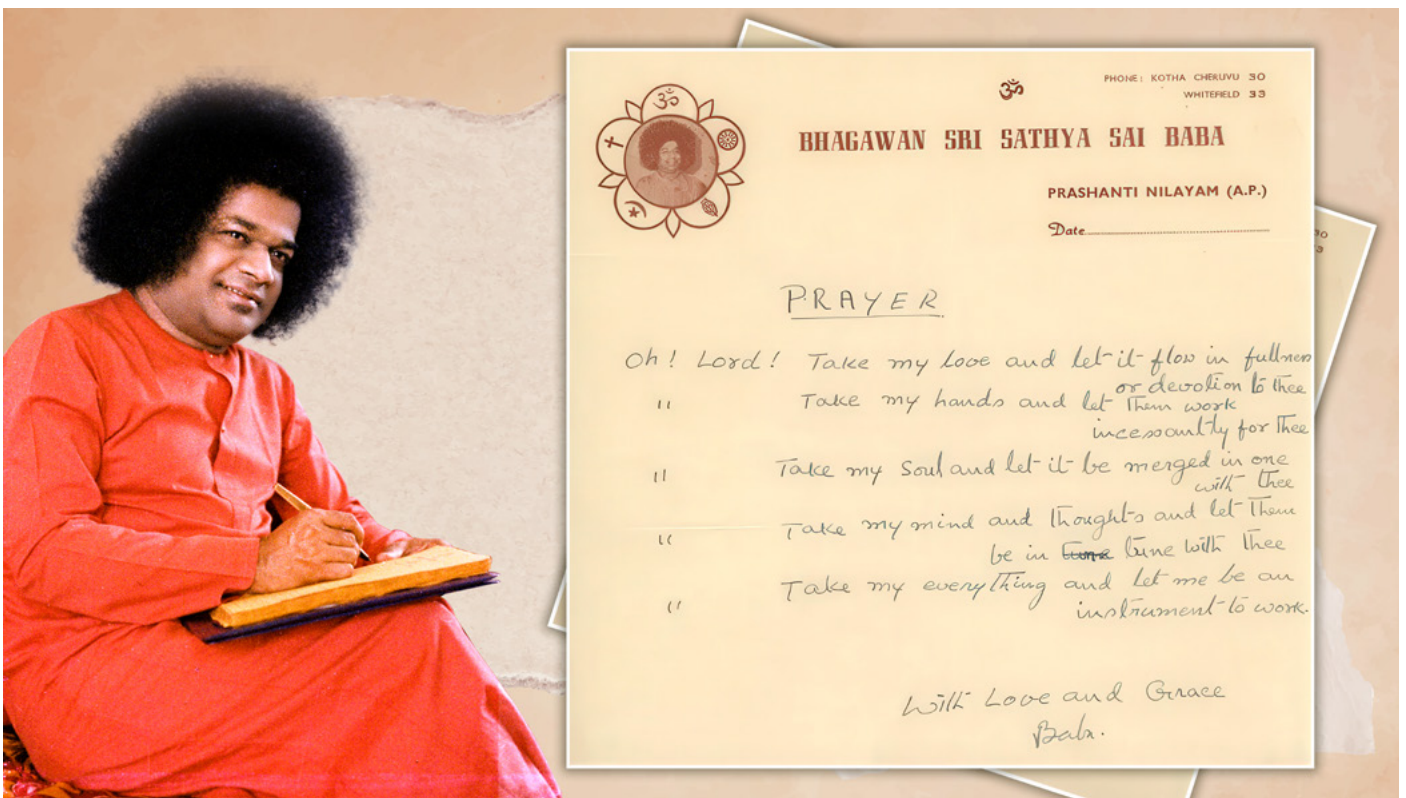 ॐ
PHONE: KOTHA CHERUVU 30
WHITEFIELD 33
ॐ
BHAGAWAN SRI SATHYA SAI BABA
PRASHANTI NILAYAM (A.P.)
Date
30
3
PRAYER
Oh! Lord! Take my Love and let it flow in fullness
or devotion to thee
" Take my hands and let Them work
incessantly for Thee
" Take my Soul and let it be merged in one
with Thee
" Take my mind and Thoughts and let Them
be in tune tune with Thee
" Take my everyThing and let me be an
instrument to work.
With Love and Grace
Baba.